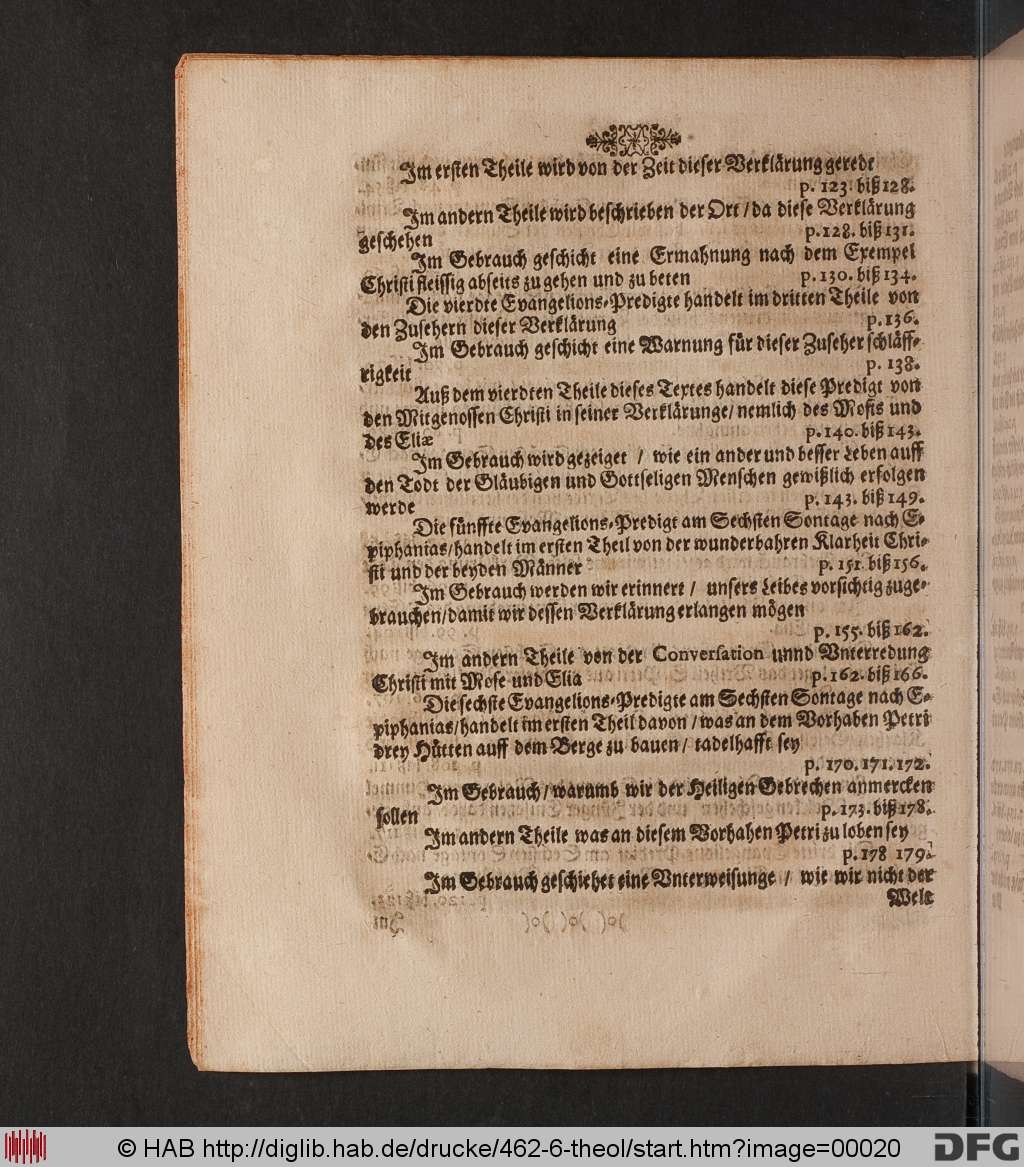 Im ersten Theile wird von der Zeit dieser Verklärung geredt
p. 123. biß 128.
Im andern Theile wird beschrieben der Ort / da diese Verklärung
geschehen p. 128. biß 131.
Im Gebrauch geschicht eine Ermahnung nach dem Exempel
Christi fleissig abseits zu gehen und zu beten p. 130. biß 134.
Die vierdte Evangelions-Predigte handelt im dritten Theile von
den Zusehern dieser Verklärung p. 136.
Im Gebrauch geschicht eine Warnung für dieser Zuseher schläff-
rigkeit p. 138.
Auß dem vierdten Theile dieses Textes handelt diese Predigt von
den Mitgenossen Christi in seiner Verklärunge / nemlich des Mosis und
des Eliæ p. 140. biß 143.
Im Gebrauch wird gezeiget / wie ein ander und besser Leben auff
den Todt der Gläubigen und Gottseligen Menschen gewißlich erfolgen
werde p. 143. biß 149.
Die fünffte Evangelions-Predigt am Sechsten Sontage nach E-
piphanias / handelt im ersten Theil von der wunderbahren Klarheit Chri-
sti und der beyden Männer p. 151. biß 156.
Im Gebrauch werden wir erinnert / unsers Leibes vorsichtig zuge-
brauchen / damit wir dessen Verklärung erlangen mögen
p. 155. biß 162.
Im andern Theile von der Conversation unnd Vnterredung
Christi mit Mose und Elia p. 162. biß 166.
Die sechste Evangelions-Predigte am Sechsten Sontage nach E-
piphanias / handelt im ersten Theil davon / was an dem Vorhaben Petri
drey Hütten auff dem Berge zu bauen / tadelhafft sey
p. 170. 171. 172.
Im Gebrauch / warumb wir der Heiligen Gebrechen anmercken
sollen p. 173. biß 178.
Im andern Theile was an diesem Vorhahen Petri zu loben sey
p. 178 179.
Im Gebrauch geschiehet eine Vnterweisunge / wie wir nicht der
Welt
© HAB http://diglib.hab.de/drucke/462-6-theol/start.htm?image=00020
DFG